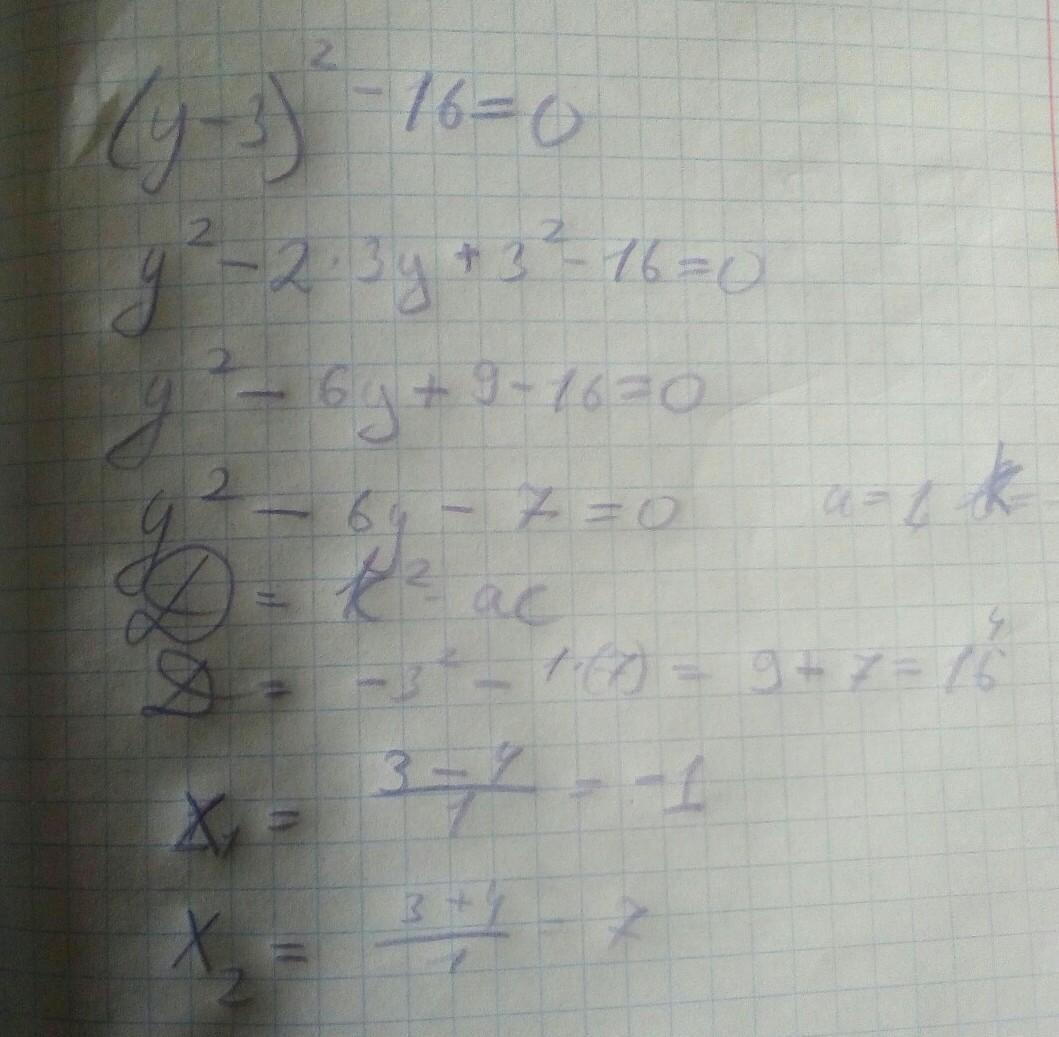 (y-3)² - 16 = 0
y² - 2·3y + 3² - 16 = 0
y² - 6y + 9 - 16 = 0
y² - 6y - 7 = 0 a = 1 k=
D = k² - ac
D = -3² - 1·(7) = 9 + 7 = 16 4
x₁ = (3 - 4)/1 = -1
x₂ = (3 + 4)/1 - 7